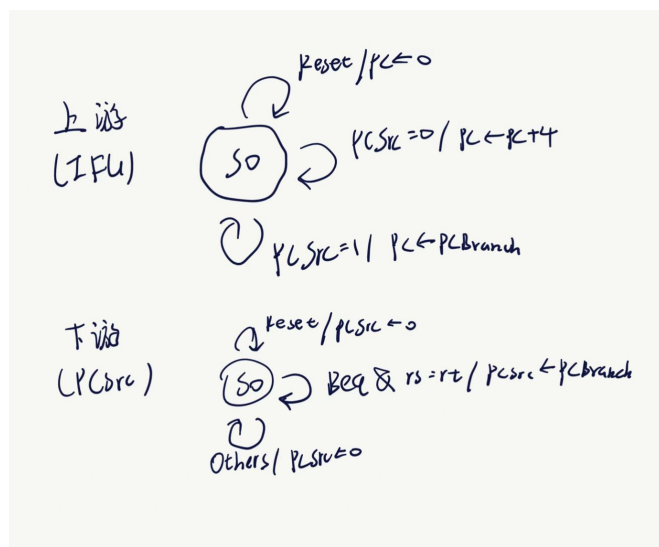 Reset/PC←0
上游
(IFU)
S0
PCSrc=0/PC←PC+4
PCSrc=1/PC←PCBranch
下游
(PCSrc)
Reset/PCSrc←0
S0
Beq & rs=rt/PCSrc←PCBranch
Others/PCSrc←0